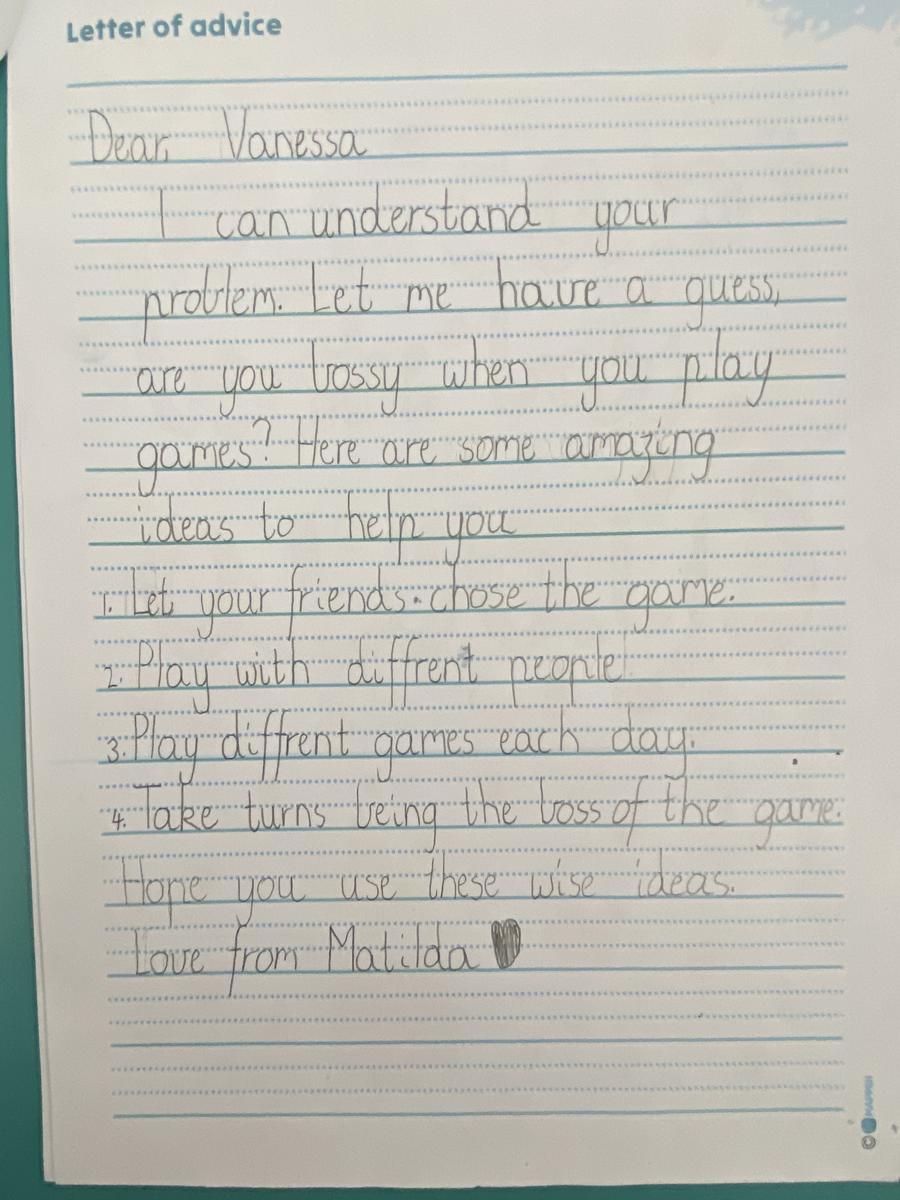 Letter of advice
Dear, Vanessa
I can understand your
problem. Let me have a guess,
are you bossy when you play
games? Here are some amazing
ideas to help you
1. Let your friends. chose the game.
2. Play with diffrent people
3. Play diffrent games each day.
4. Take turns being the boss of the game.
Hope you use these wise ideas.
Love from Matilda